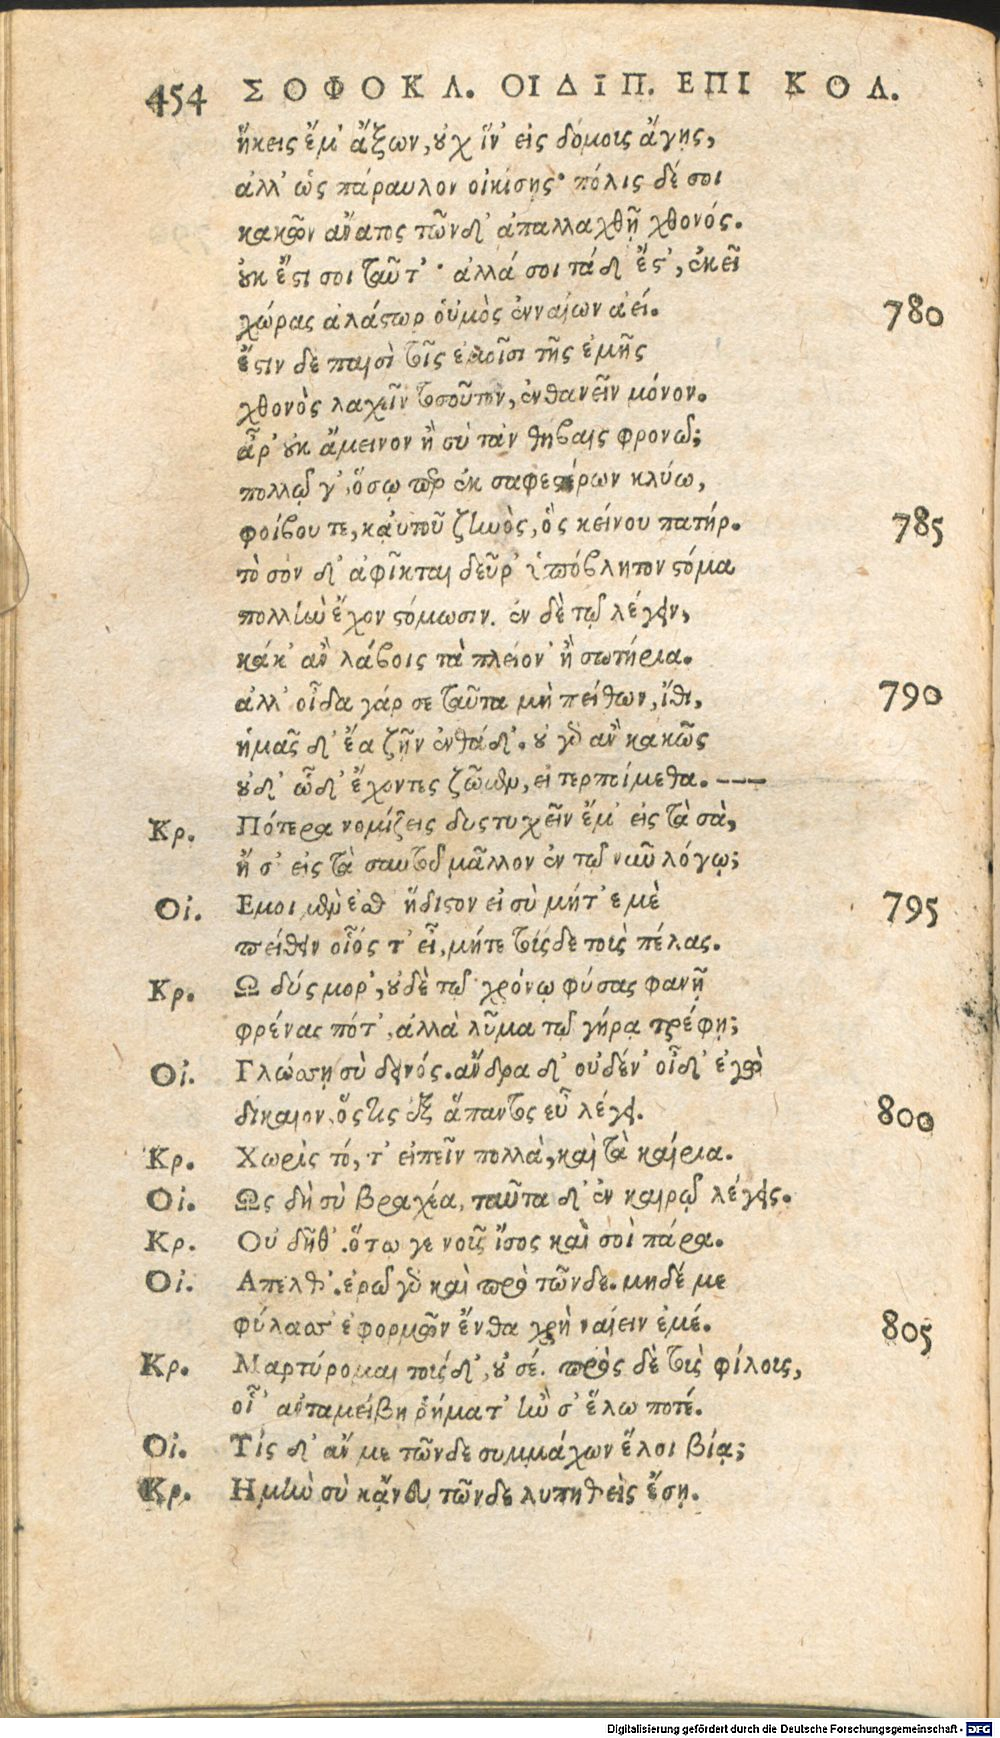 454 ΣΟΦΟΚΛ. ΟΙΔΙΠ. ΕΠΙ ΚΟΛ.
ἥκεις ἔμ' ἄξων, οὐχ ἵν' εἰς δόμοις ἄγῃς,
ἀλλ' ὡς πάραυλον οἰκίσῃς· πόλις δέ σοι
κακῶν ἄνατος τῶνδ' ἀπαλλαχθῇ χθονός.
οὐκ ἔστι σοι ταῦτ'· ἀλλά σοι τάδ' ἔστ', ἐκεῖ
χώρας ἀλάστωρ οὑμὸς ἐνναίων ἀεί. 780
ἔστιν δε παισὶ τοῖς ἐμοῖσι τῆς ἐμῆς
χθονὸς λαχεῖν τοσοῦτον, ἐνθανεῖν μόνον.
ἆρ' οὐκ ἄμεινον ἢ σὺ τἀν θήβαις φρονῶ;
πολλῷ γ', ὅσῳ περ ἐκ σαφεστέρων κλύω,
φοίβου τε, καὐτοῦ ζηνὸς, ὃς κείνου πατήρ. 785
τὸ σὸν δ' ἀφῖκται δεῦρ' ὑπόβλητον στόμα
πολλὴν ἔχον στόμωσιν. ἐν δὲ τῷ λέγειν,
κάκ' ἂν λάβοις τὰ πλείον' ἢ σωτήρια.
ἀλλ' οἶδα γάρ σε ταῦτα μὴ πείθων, ἴθι, 790
ἡμᾶς δ' ἔα ζῆν ἐνθάδ'. οὐ γὰρ ἂν κακῶς
οὐδ' ὧδ' ἔχοντες ζῶμεν, εἰ τερποίμεθα. ---
Κρ. Πότερα νομίζεις δυστυχεῖν ἔμ' εἰς τὰ σὰ,
ἢ σ' εἰς τὰ σαυτοῦ μᾶλλον ἐν τῷ νῦν λόγῳ;
Οἰ. Εμοι μὲν ἐσθ' ἥδιστον εἰ σὺ μήτ' ἐμὲ 795
πείθειν οἷός τ' εἶ, μήτε τούσδε τοὺς πέλας.
Κρ. Ω δύσμορ', οὐδὲ τῷ χρόνῳ φύσας φανῇ
φρένας πότ', ἀλλὰ λῦμα τῷ γήρᾳ τρέφῃ;
Οἰ. Γλώσσῃ σὺ δεινός. ἄνδρα δ' οὐδέν' οἶδ' ἐγὼ
δίκαιον, ὅστις ἐξ ἅπαντος εὖ λέγει. 800
Κρ. Χωρὶς τό, τ' εἰπεῖν πολλὰ, καὶ τὰ καίρια.
Οἰ. Ως δὴ σὺ βραχέα, ταῦτα δ' ἐν καιρῷ λέγεις.
Κρ. Οὐ δῆθ'. ὅτῳ γε νοῦς ἴσος καὶ σοὶ πάρα.
Οἰ. Απελθ'. ἐρῶ γὰρ καὶ πρὸ τῶνδε. μηδέ με
φύλασσ' ἐφορμῶν ἔνθα χρὴ ναίειν ἐμέ. 805
Κρ. Μαρτύρομαι τούσδ', οὐ σέ. πρὸς δὲ τοὺς φίλους,
οἷ' ἀνταμείβῃ ῥήματ' ἢν σ' ἕλω ποτέ.
Οἰ. Τίς δ' ἄν με τῶνδε συμμάχων ἕλοι βίᾳ;
Κρ. Η μὴν σὺ κἄνευ τῶνδε λυπηθεὶς ἔσῃ.
Digitalisierung gefördert durch die Deutsche Forschungsgemeinschaft - DFG